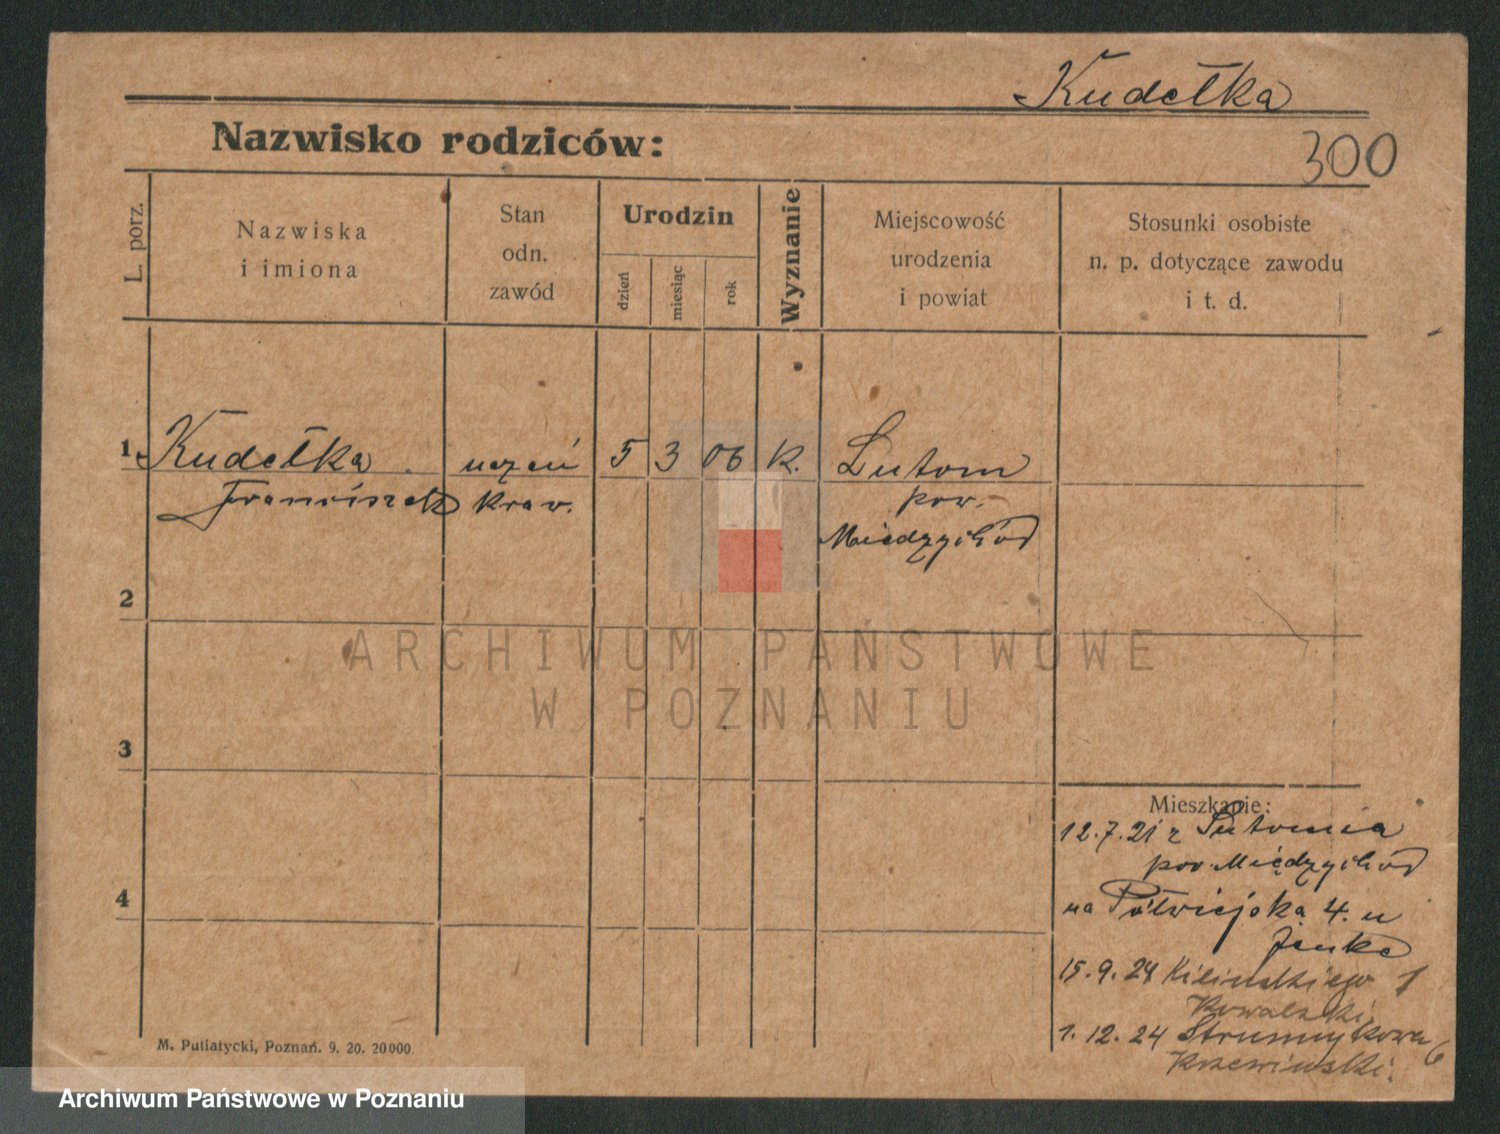 Kudełka
Nazwisko rodziców:
300
L. porz.
Nazwiska
i imiona
Stan
odn.
zawód
Urodzin
dzień
miesiąc
rok
Wyznanie
Miejscowość
urodzenia
i powiat
Stosunki osobiste
n. p. dotyczące zawodu
i t. d.
1 Kudełka uczeń 5 3 06 K. Lutom
Franciszek kraw. pow.
Miedzychód
2
3
4
Mieszkanie:
12.7.21 z Lutomia
pow. Międzychód
na Półwiejska 4. u
Jenke
15.9.24 Kilińskiego 1
Kowalski
1.12.24 Strumykowa 6
Krzewiński.
M. Putiatycki, Poznań. 9. 20. 20000.
ARCHIWUM PAŃSTWOWE
W POZNANIU
Archiwum Państwowe w Poznaniu